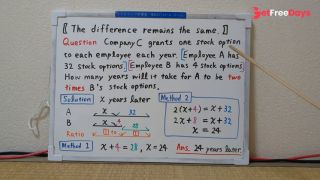 GetFreeDays
【 The difference remains the same. 】
Question Company C grants one stock option
to each employee each year. Employee A has
32 stock options. Employee B has 4 stock options.
How many years will it take for A to be two
times B's stock options.
Solution x years later
A x 32
B x 4 28
Ratio 1 1
Method 1 x + 4 = 28, x = 24
Method 2
2(x+4) = x + 32
2x + 8 = x + 32
x = 24
Ans. 24 years later